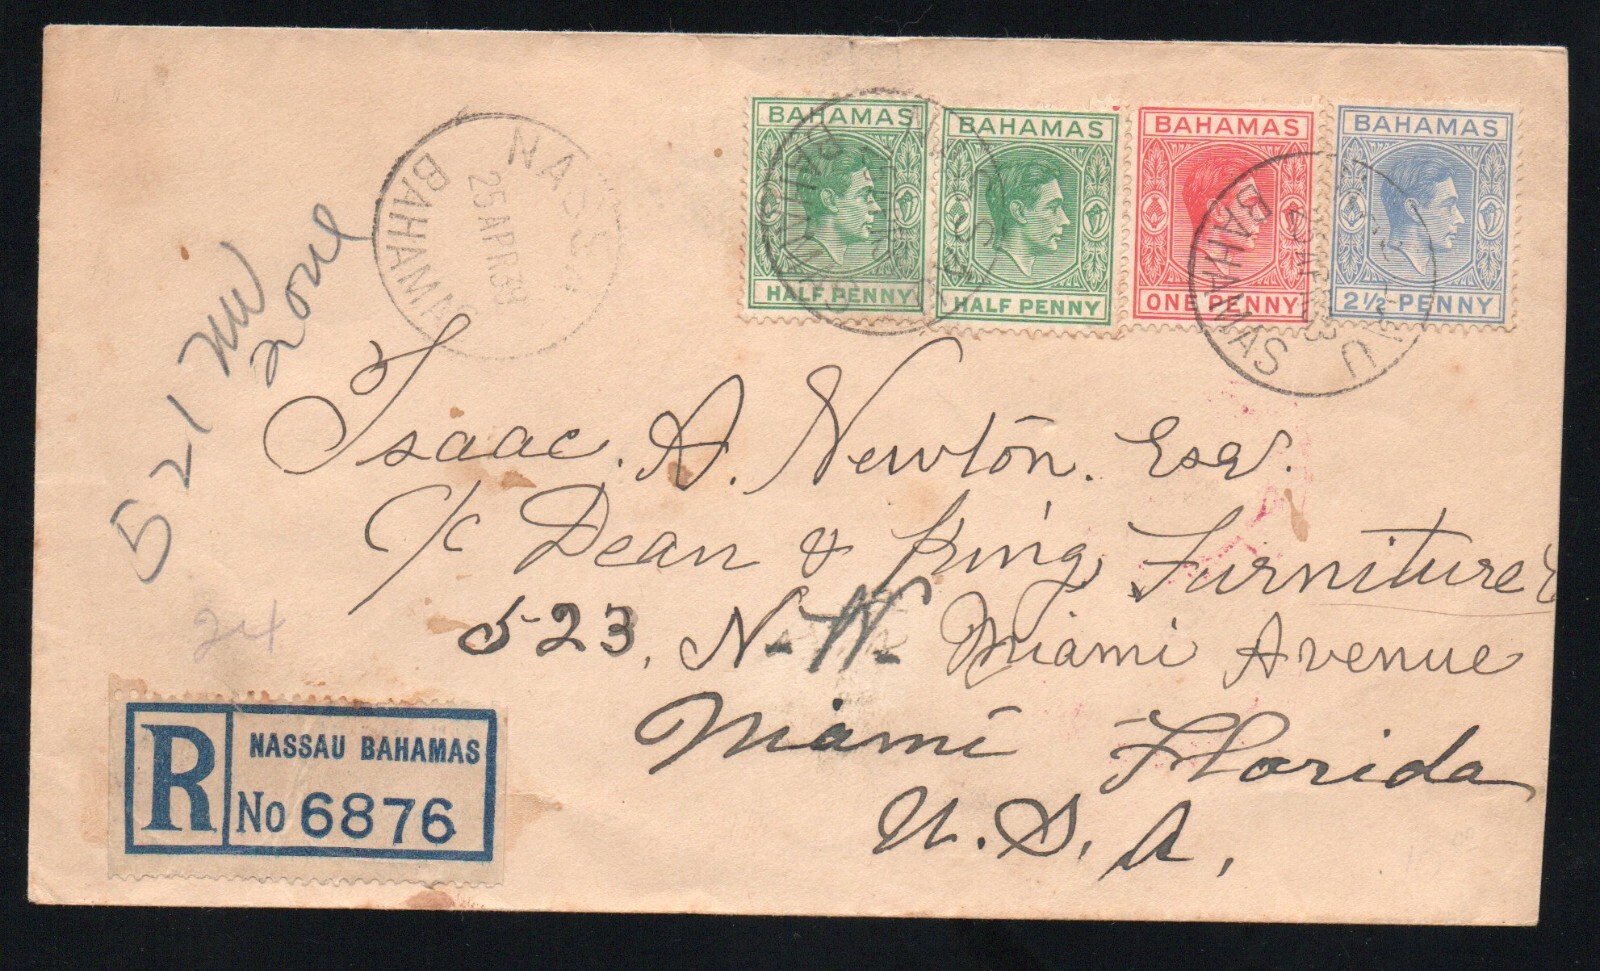 NASSAU
25 APR 38
BAHAMAS
BAHAMAS
HALF PENNY
BAHAMAS
HALF PENNY
BAHAMAS
ONE PENNY
BAHAMAS
2½ PENNY
BAHAMAS
521 NW
Isaac. A. Newton. Esq.
c/c Dean & King Furniture
523, N-W- Miami Avenue
Miami Florida
U. S. A.
24
R
NASSAU BAHAMAS
No 6876